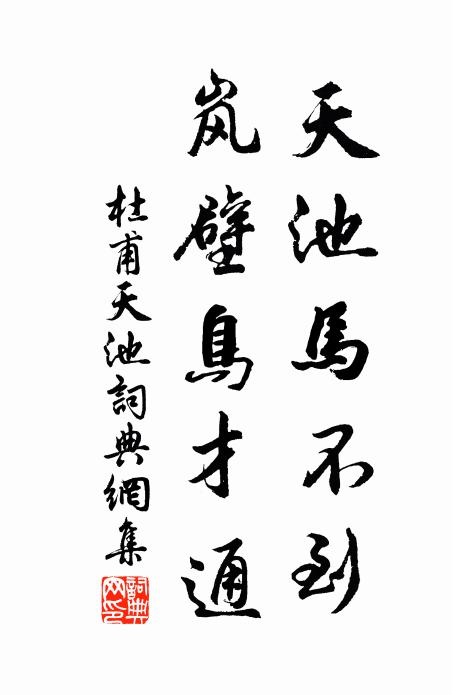 天池馬不到
岚壁鳥才通
杜甫天池詞典網集
詞典